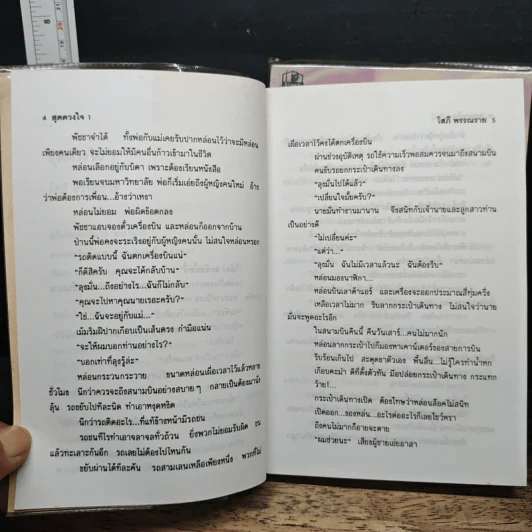 4 สุดดวงใจ 1
พัชชาจำได้ ทั้งพ่อกับแม่เคยรับปากหล่อนไว้ว่าจะมีหล่อน
เพียงคนเดียว จะไม่ยอมให้มีคนอื่นก้าวเข้ามาในชีวิต
หล่อนเลือกอยู่กับบิดา เพราะต้องเรียนหนังสือ
พอเรียนจบมหาวิทยาลัย พ่อก็เริ่มเอ่ยถึงผู้หญิงคนใหม่ อ้าง
ว่าพ่อต้องการเพื่อน...อ้างว่าเหงา
หล่อนไม่ยอม พ่อผิดข้อตกลง
พัชชาแอบจองตั๋วเครื่องบิน และหล่อนก็ออกจากบ้าน
ป่านนี้พ่อคงจะระเริงอยู่กับผู้หญิงคนนั้น ไม่สนใจหล่อนหรอก
"รถติดแบบนี้ ฉันตกเครื่องบินแน่"
"ก็ดีสิครับ คุณจะได้กลับบ้าน"
"ลุงมั่น...ถึงอย่างไร...ฉันก็ไม่กลับ"
"คุณจะไปหาคุณนายเรอะครับ?"
"ใช่...ฉันจะอยู่กับแม่..."
เม้มริมฝีปากเกือบเป็นเส้นตรง กำมือแน่น
"จะให้ผมบอกท่านอย่างไร?"
"บอกเท่าที่ลุงรู้ล่ะ"
หล่อนกระวนกระวาย ขนาดหล่อนเผื่อเวลาไว้แล้วหลาย
ชั่วโมง นึกว่าควรจะถึงสนามบินอย่างสบายๆ กลายเป็นต้องมานั่ง
ลุ้น รถขยับไปทีละนิด ทำเอาหงุดหงิด
นึกว่ารถติดอะไร...ที่แท้ข้างหน้ามีรถชน
รถชนทีไรทำเอาจลาจลทั่วถ้วน ยิ่งพวกไม่ยอมรับผิด ชน
แล้วทะเลาะกันอีก รถเลยไม่ต้องไปไหนกัน
ขยับผ่านได้ทีละคัน รถสามเลนเหลือเพียงหนึ่ง พวกที่ไม่
โสภี พรรณราย 5
เผื่อเวลาไว้คงได้ตกเครื่องบิน
ผ่านช่วงอุบัติเหตุ รถใช้ความเร็วพอสมควรจนมาถึงสนามบิน
คนขับรถยกกระเป๋าเดินทางลง
"ลุงมั่นไปได้แล้ว"
"เปลี่ยนใจมั้ยครับ?"
นายมั่นทำงานมานาน จึงสนิทกับเจ้านายและลูกสาวท่าน
เป็นอย่างดี
"ไม่เปลี่ยนค่ะ"
"แต่ว่า..."
"ลุงมั่น ฉันไม่มีเวลาแล้วนะ ฉันต้องรีบ"
หล่อนมองนาฬิกา...
หล่อนบินเลาด้าแอร์ และเครื่องจะออกประมาณสี่ทุ่มครึ่ง
เหลือเวลาไม่มาก รีบลากกระเป๋าเดินทาง ไม่สนใจว่านาย
มั่นจะพูดอะไรอีก
ในสนามบินคืนนี้ คืนวันเสาร์...คนไม่มากนัก
หล่อนลากกระเป๋าไปก็มองหาเคาน์เตอร์ของสายการบิน
รีบร้อนเกินไป สะดุดขาตัวเอง พื้นลื่น...ไม่รู้ใครทำน้ำหก
เกือบคะมำ ดีที่ตั้งตัวทัน มือปล่อยกระเป๋าเดินทาง กระแทก
ว้าย!...
กระเป๋าเดินทางเปิด ต้องโทษว่าหล่อนล็อคไม่สนิท
เปิดออก...ของหล่น...อะไรต่ออะไรก็เลยโชว์หรา
ถึงคนไม่มากก็อายจะตาย
"ผมช่วยนะ" เสียงผู้ชายเอ่ยอาสา